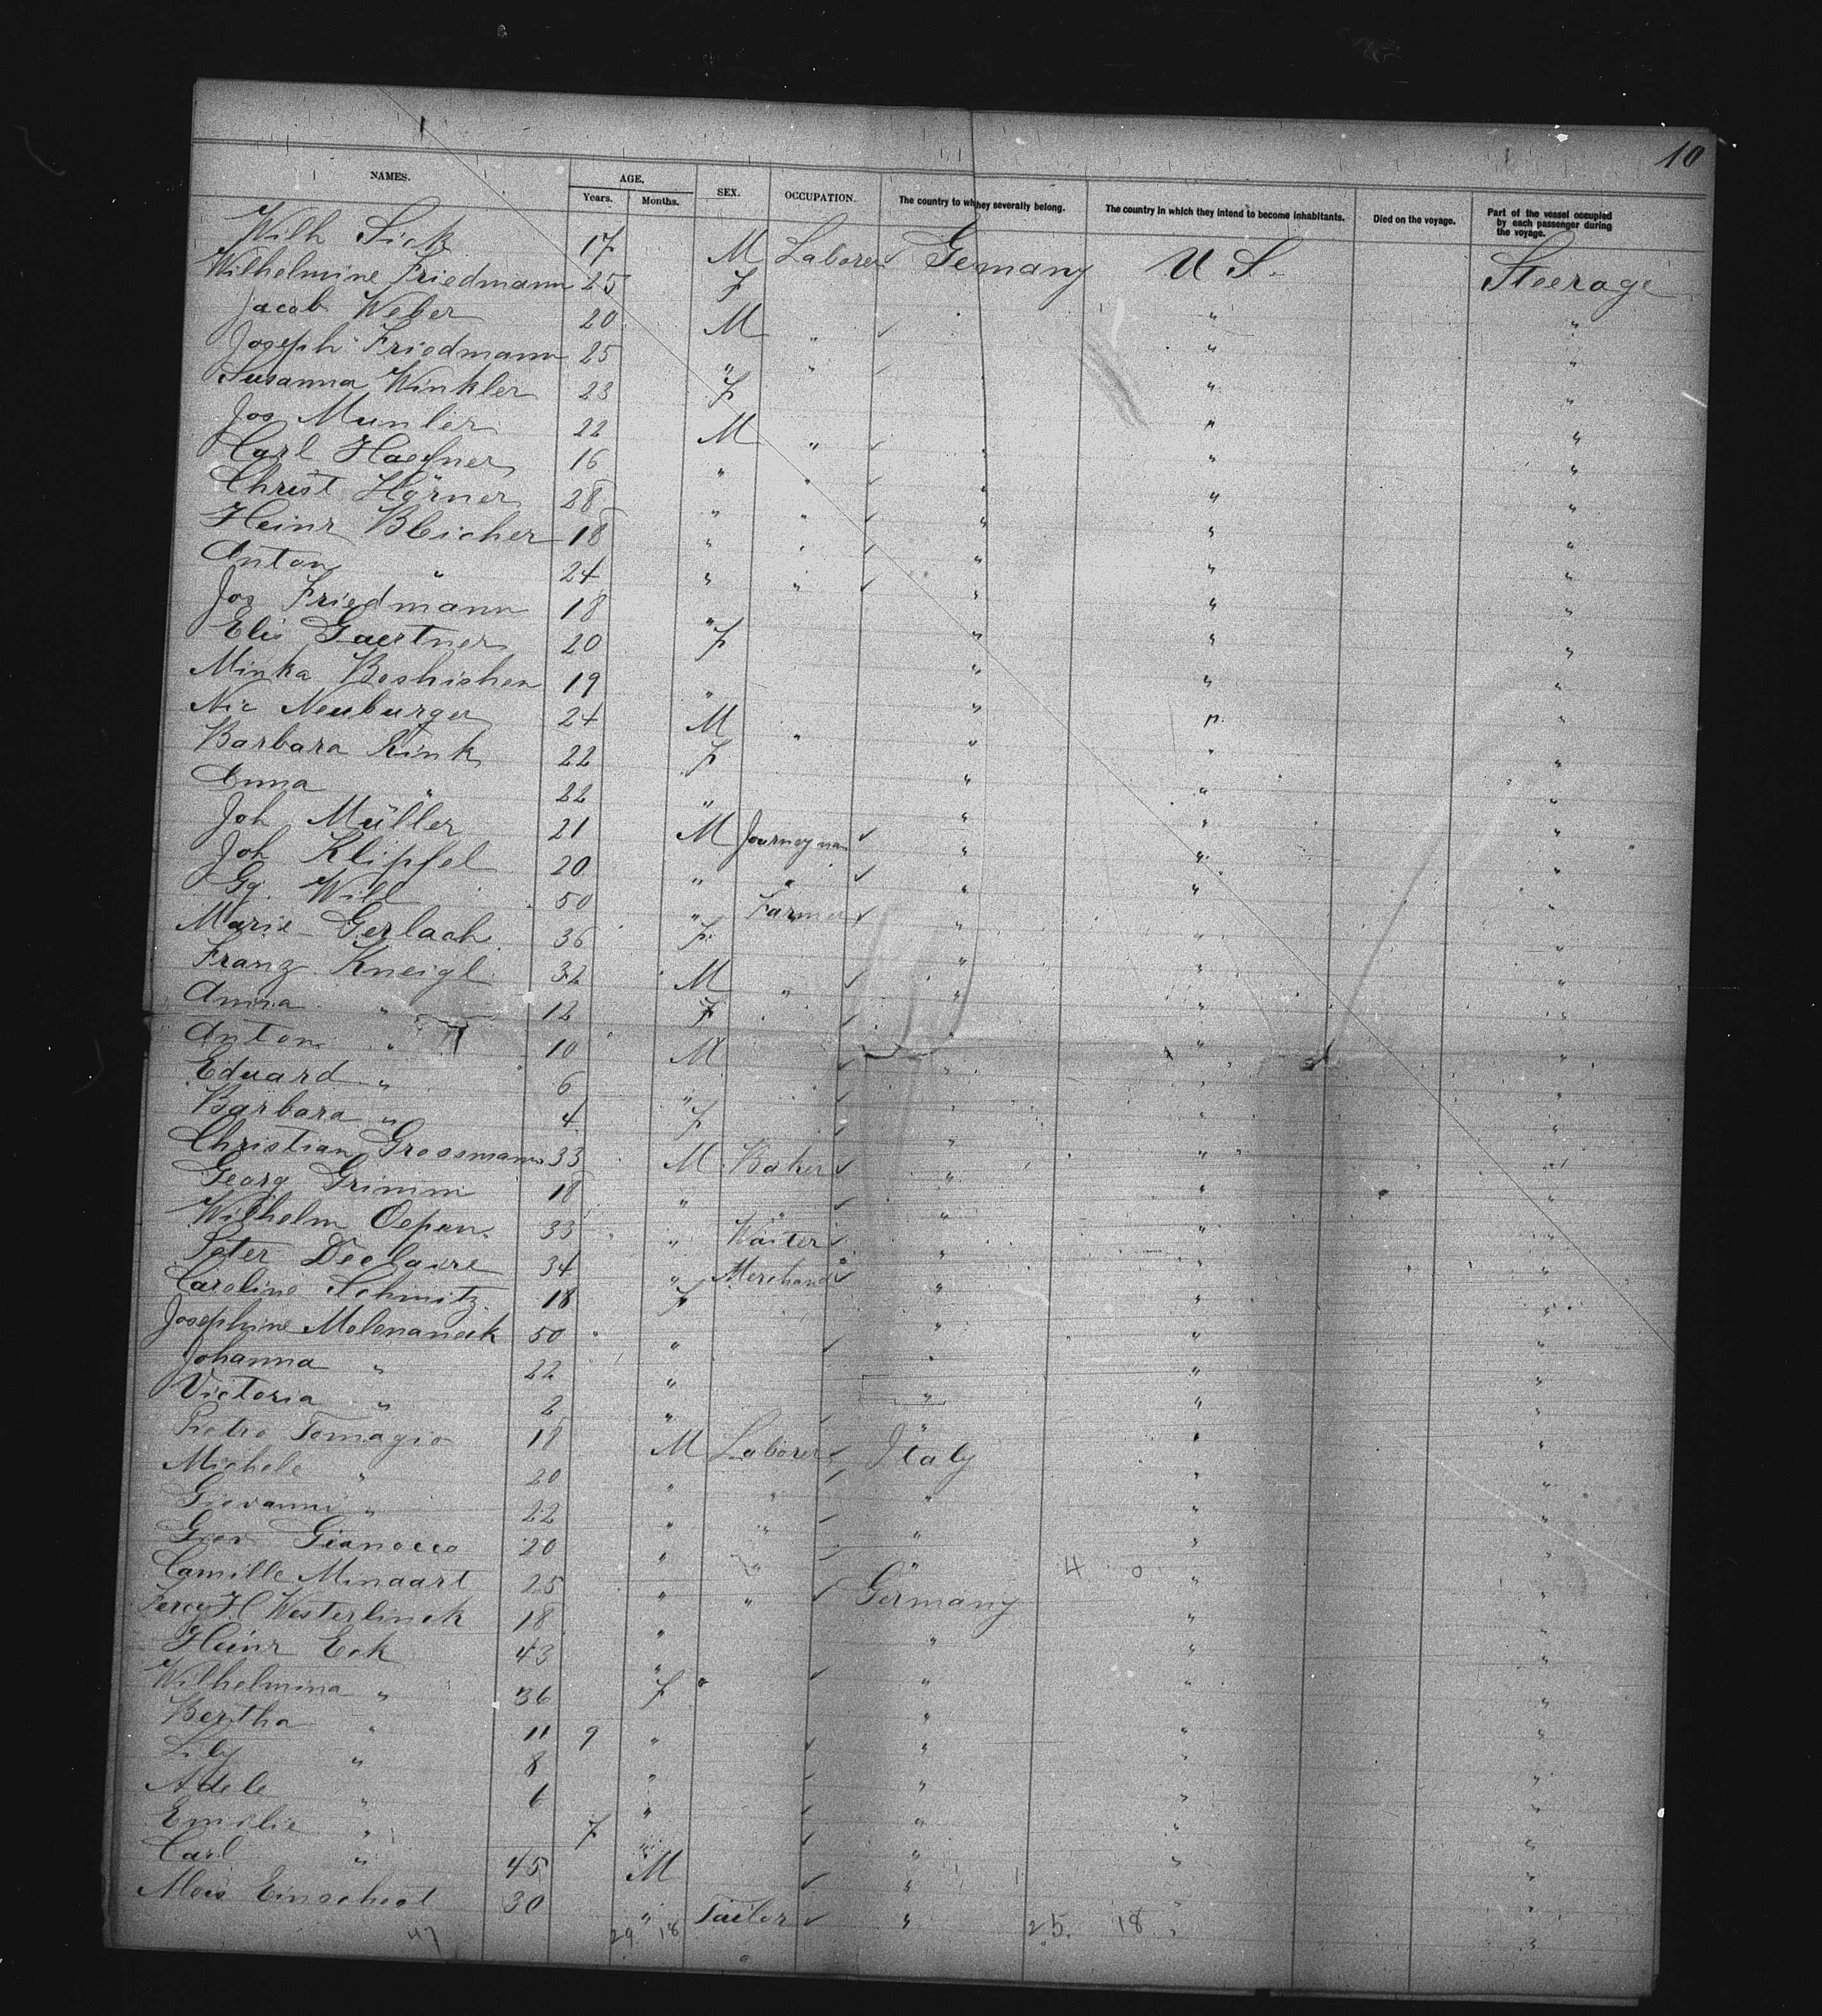 10
NAMES. AGE. SEX. OCCUPATION. The country to which they severally belong. The country in which they intend to become inhabitants. Died on the voyage. Part of the vessel occupied by each passenger during the voyage.
Years. Months.
Wilh Sick 17 M Laborer Germany U S. Steerage
Wilhelmine Friedmann 25 F " "
Jacob Weber 20 M " " "
Joseph Friedmann 25 " " " "
Susanna Winkler 23 F " "
Jos Munler 22 M " " " "
Carl Haefner 16 " " " " "
Christ Hörner 28 " " " " "
Heinr Bleicher 18 " " " " "
Anton " 24 " " " " "
Jos Friedmann 18 " " " "
Elis Gaertner 20 F " " "
Minka Boshishen 19 " " " "
Nic Neuburger 24 M " " " "
Barbara Rink 22 F " " "
Anna " 22 " " " "
Joh Müller 21 M Journeyman " " "
Joh Klipfel 20 " " " " "
Gg. Will 50 " Farmer " " "
Marie Gerlach 36 F " " "
Franz Kneigl 32 M " " " "
Anna " 12 F " " "
Anton " 10 M " " "
Eduard " 6 " " " "
Barbara " 4 F " " "
Christian Grossmann 33 M Baker " " "
Georg Grimm 18 " " " " "
Wilhelm Oepen 33 " Waiter " " "
Peter Declaire 34 " Merchand " " "
Caroline Schmitz 18 F " " "
Josephine Molenanock 50 " " " "
Johanna " 22 " " " "
Victoria " 2 " " " "
Pietro Tomagio 18 M Laborer Italy " "
Michele " 20 " " " " "
Giovanni " 22 " " " " "
Giov Gianocco 20 " " " " "
Camille Minaart 25 " " Germany 4 0 " "
H Westerlinck 18 " " " "
Heinr Eck 43 " " " "
Wilhelmina " 36 F " " "
Bertha " 11 9 " " " "
Lily " 8 " " " "
Adele " 6 " " " "
Emilie " 7 " " " "
Carl " 45 M " " "
Alois Einschiot 30 " Tailor " " "
47 29 18 25. 18